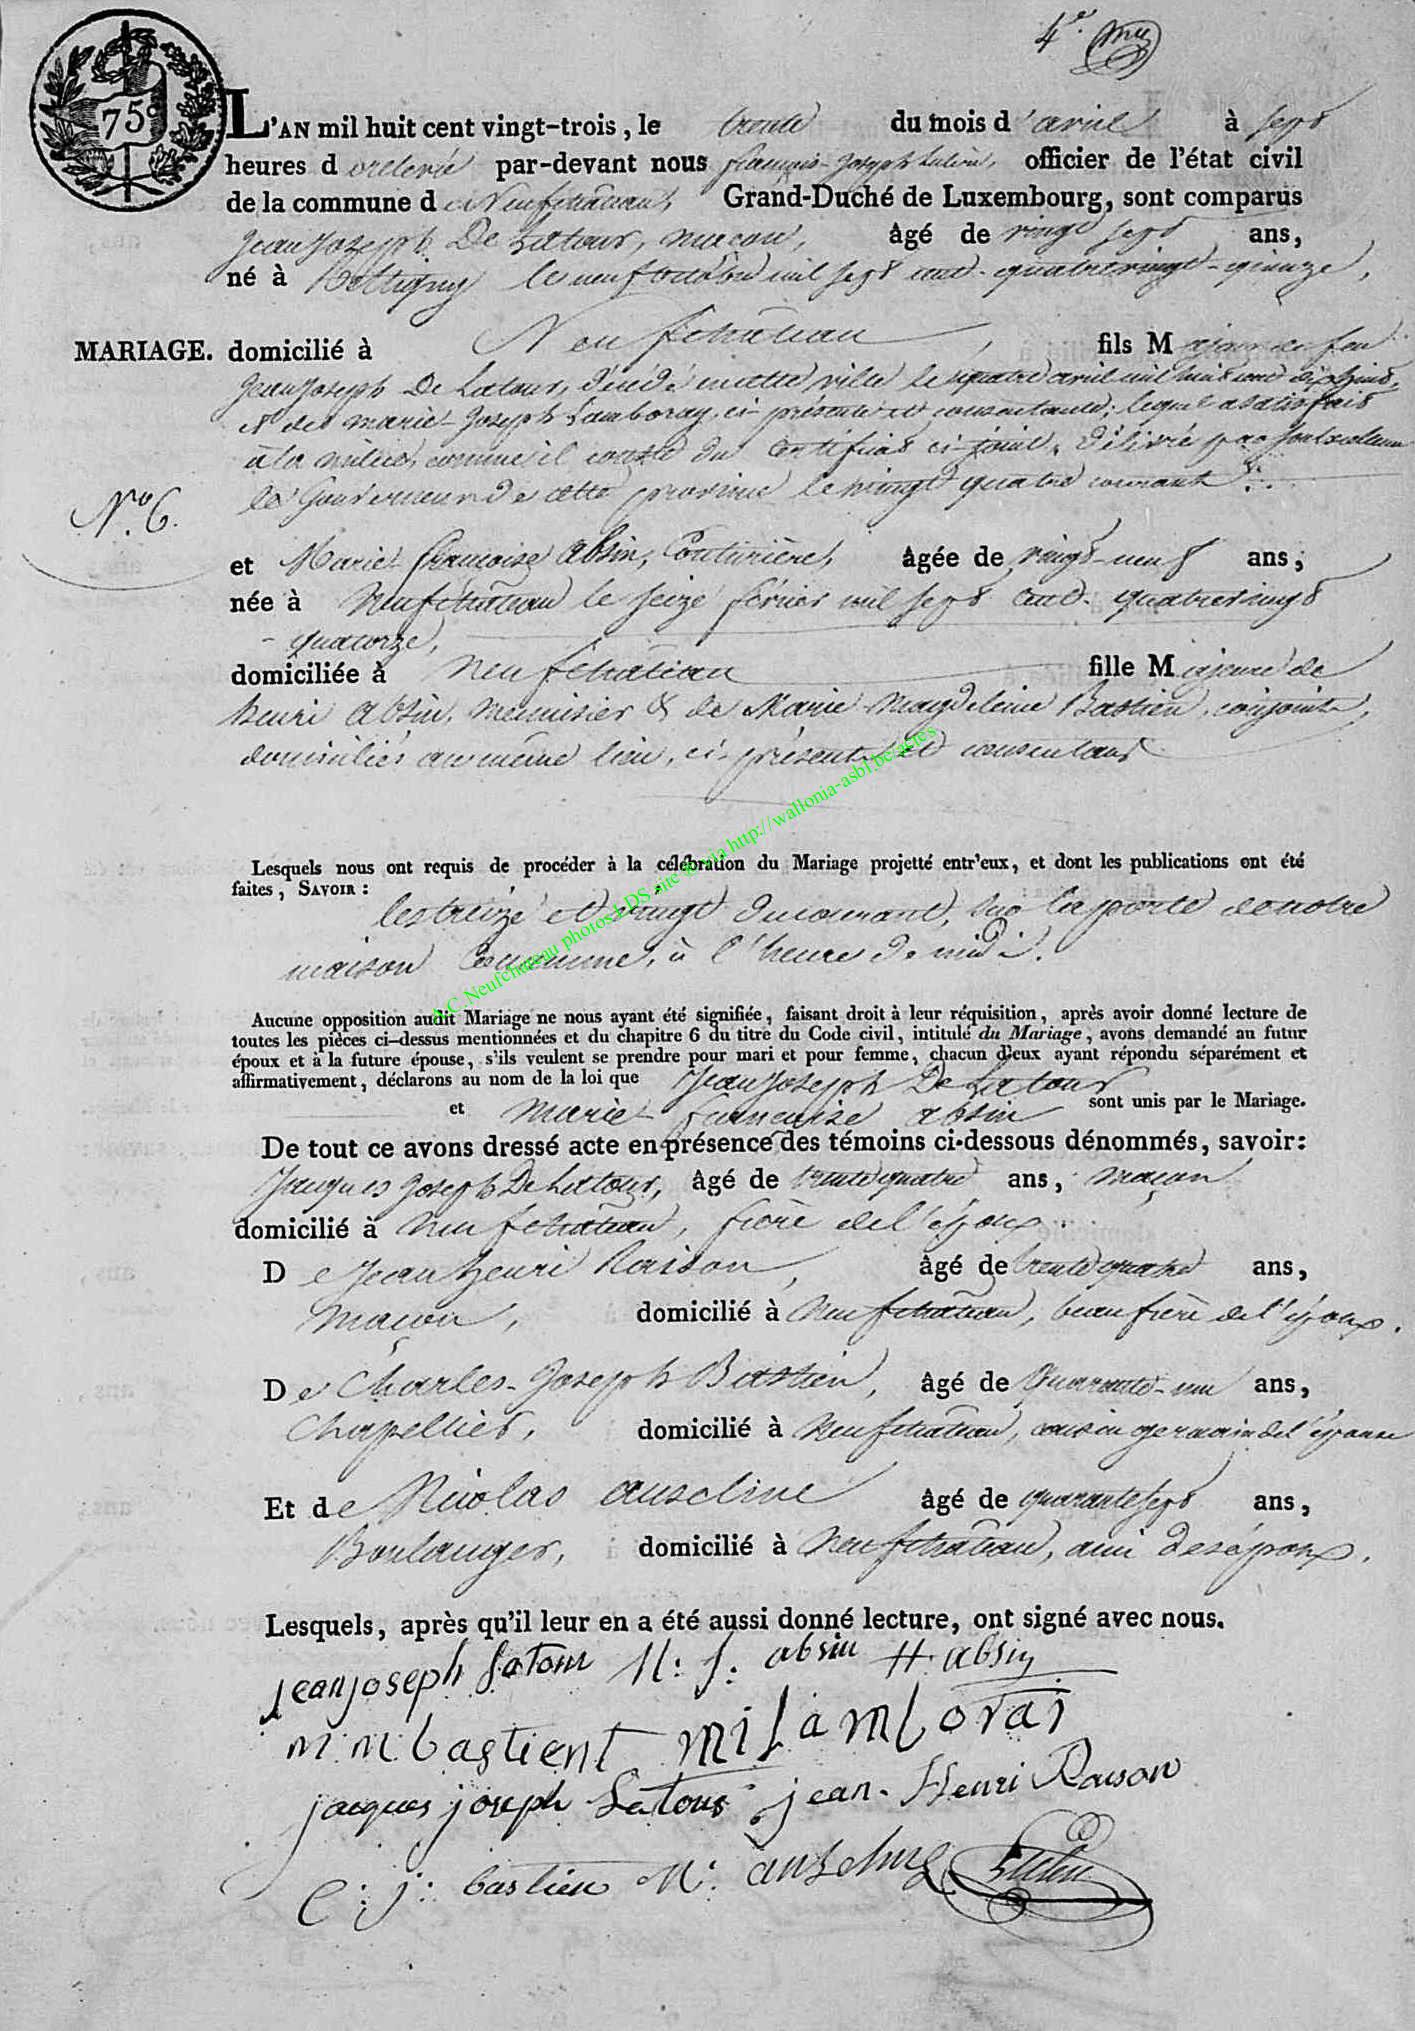 4e.
75c
L'AN mil huit cent vingt-trois, le trente du mois d'avril à sept
heures d relevée par-devant nous françois-Joseph officier de l'état civil
de la commune de Neufchateau, Grand-Duché de Luxembourg, sont comparus
Jean Joseph De Latour, maçon, âgé de vingt sept ans,
né à le neuf octobre mil sept cent-quatrevingt-quinze,
MARIAGE. domicilié à Neufchateau, fils Majeur de feu
Jean Joseph De Latour, décédé en cette ville le quatre avril mil huit cent dix huit,
et de marie-Joseph Lamboray, ci-présente et consentante; lequel a satisfait
à la milice, comme il conste du Certificat ci-joint, délivré par son Excellence
le Gouverneur de cette province le vingt quatre courant
N° 6.
et Marie-françoise absin, Couturière, âgée de vingt-neuf ans;
née à Neufchateau le seize février mil sept cent-quatrevingt
-quatorze,
domiciliée à Neufchateau fille Majeure de
henri absin, menuisier & de Marie Magdeleine Bastien, conjoints,
domiciliés au même lieu, ci-présents et consentans
Lesquels nous ont requis de procéder à la célébration du Mariage projetté entr'eux, et dont les publications ont été
faites, SAVOIR :
les treize et vingt du courant, sur la porte de notre
maison Commune, à l'heure de midi.
A.C. Neufchateau photos LDS site & via http://wallonia-asbl.be/actes
Aucune opposition audit Mariage ne nous ayant été signifiée, faisant droit à leur réquisition, après avoir donné lecture de
toutes les pièces ci-dessus mentionnées et du chapitre 6 du titre du Code civil, intitulé du Mariage, avons demandé au futur
époux et à la future épouse, s'ils veulent se prendre pour mari et pour femme, chacun d'eux ayant répondu séparément et
affirmativement, déclarons au nom de la loi que Jean Joseph De Latour
et marie-françoise absin sont unis par le Mariage.
De tout ce avons dressé acte en présence des témoins ci-dessous dénommés, savoir:
Jacques Joseph De Latour, âgé de trente quatre ans, maçon
domicilié à Neufchateau, frère de l'époux.
De Jean henri Raison, âgé de trente quatre ans,
maçon, domicilié à Neufchateau, beau frère de l'époux.
De Charles-Joseph Bastien, âgé de Quarante-un ans,
Chapellier, domicilié à Neufchateau, cousin germain de l'épouse
Et de Nicolas anselme âgé de quarante sept ans,
Boulanger, domicilié à Neufchateau, ami des époux.
Lesquels, après qu'il leur en a été aussi donné lecture, ont signé avec nous.
jean joseph Latour M: f: absin H: absin
m m bastient m i lamborai
jacques joseph Latour jean-Henri Raison
C: j: bastien N: anselme